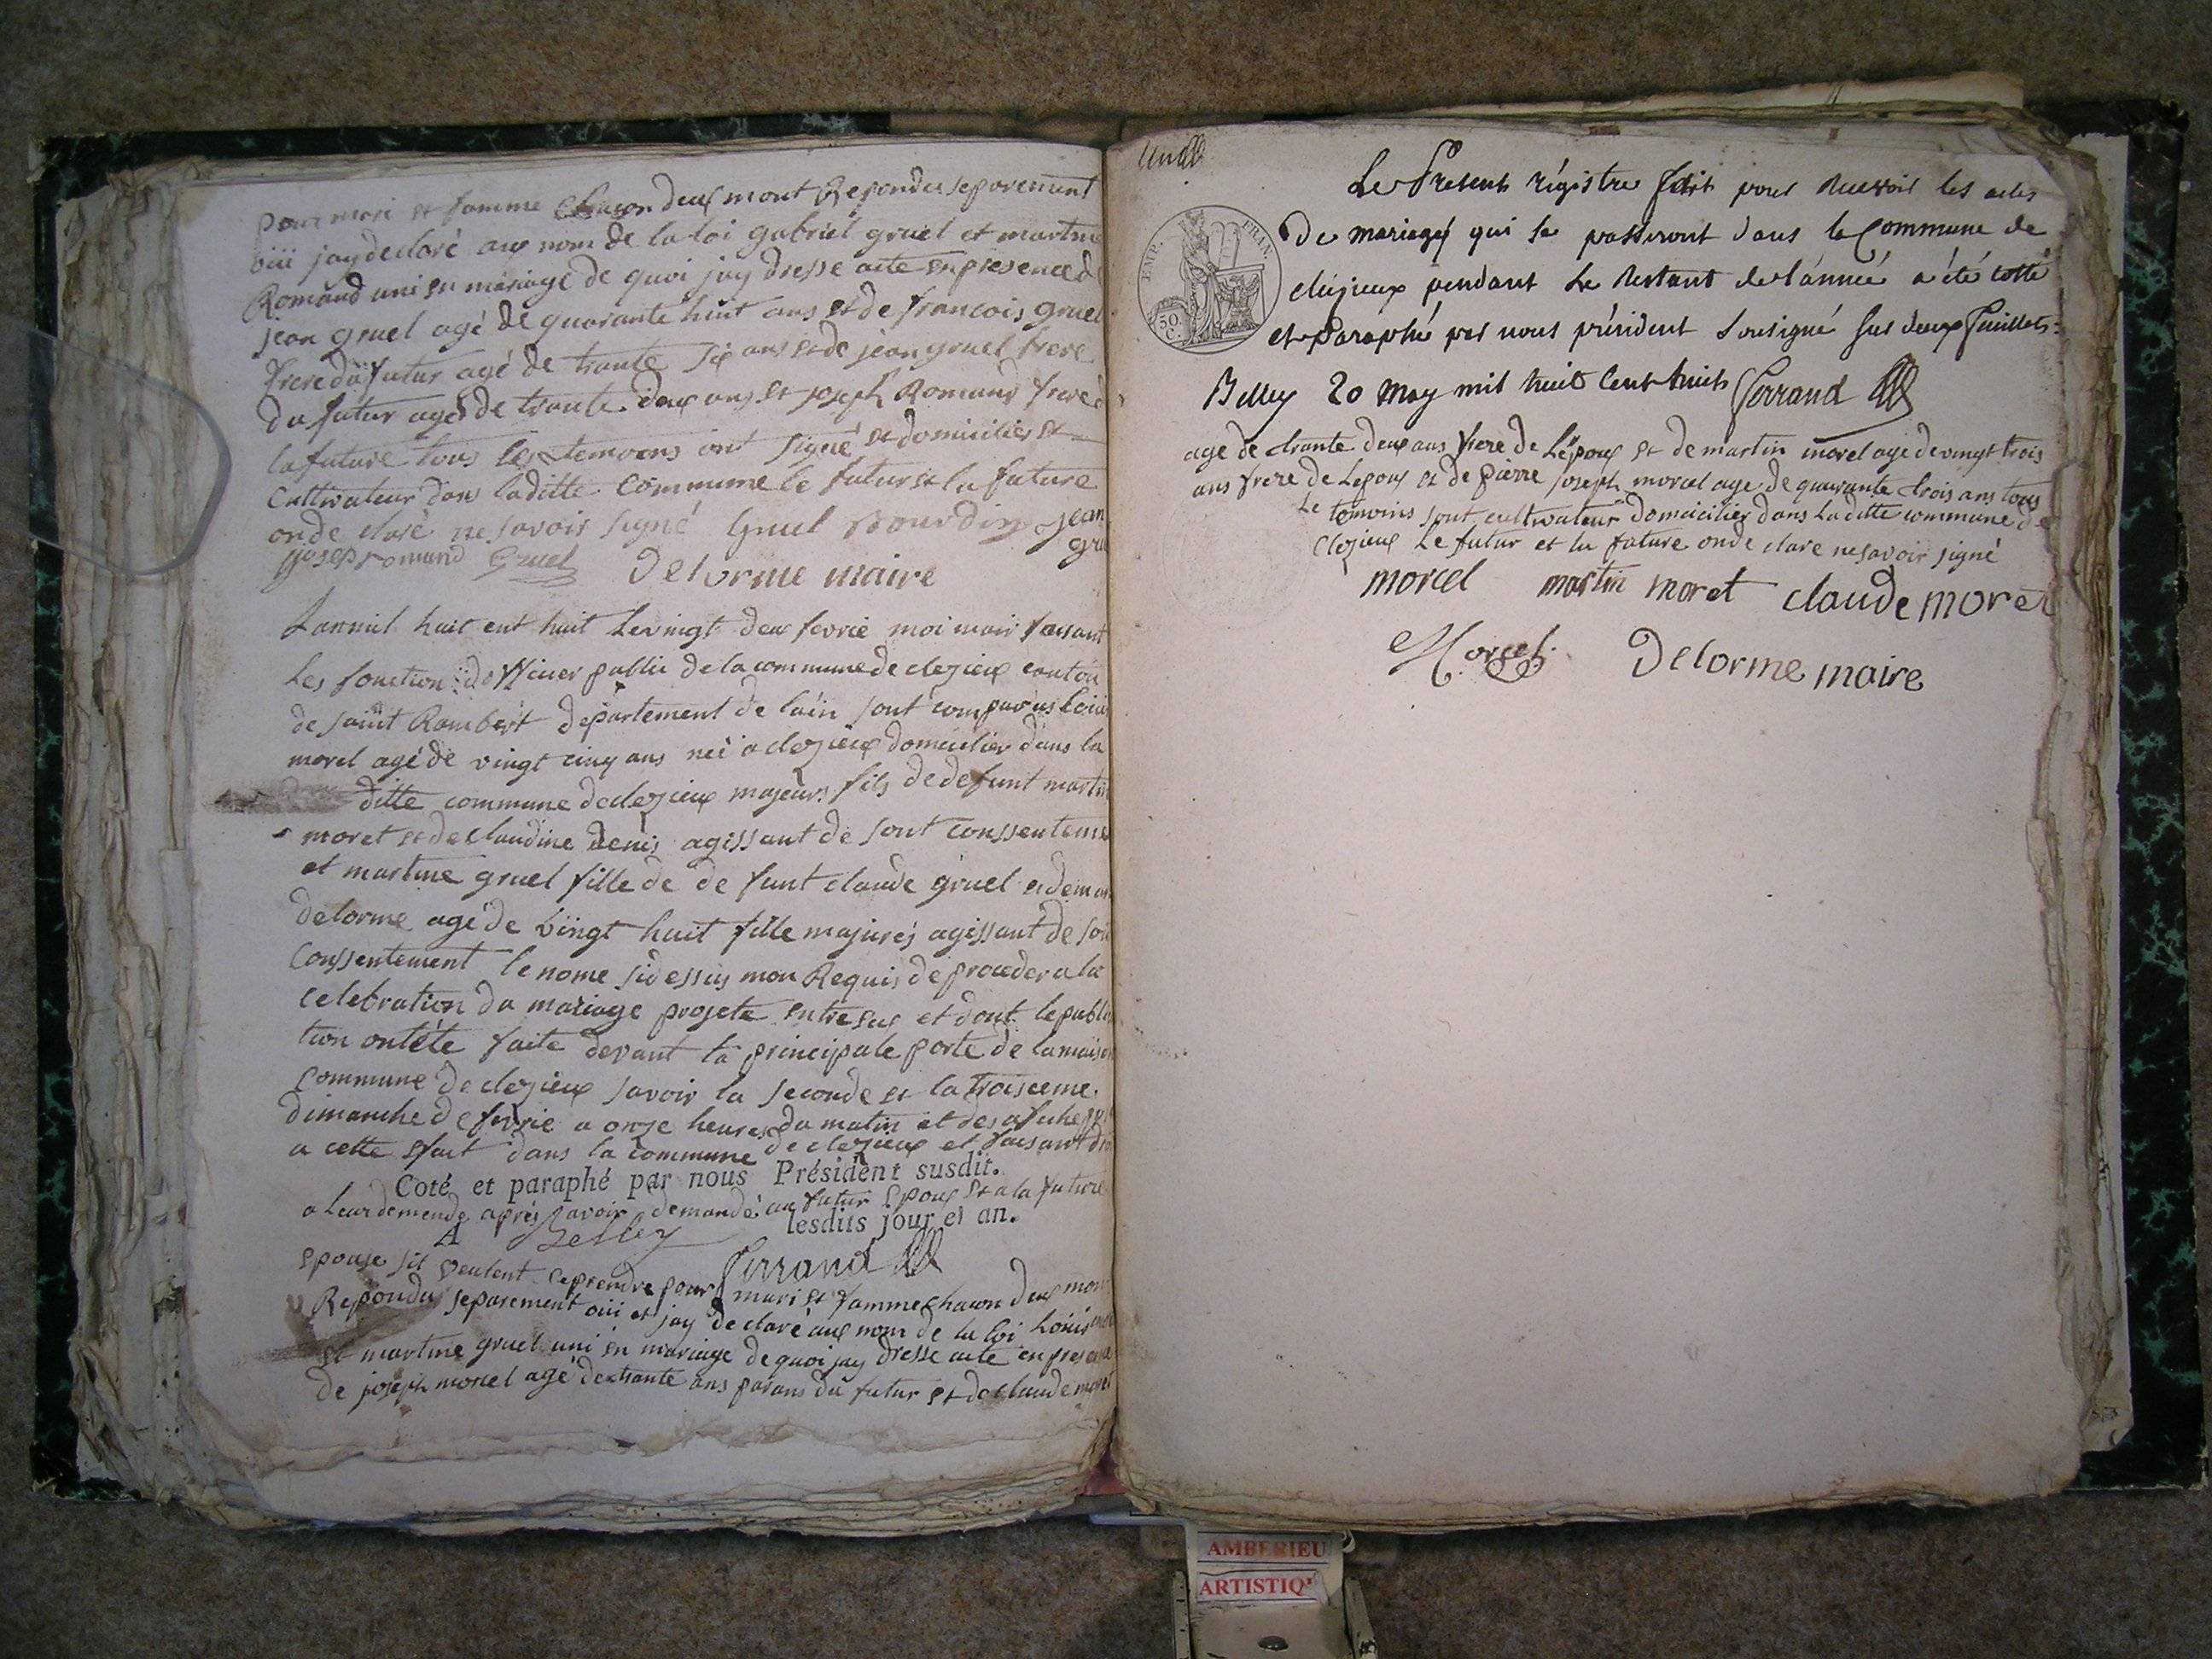 pour mari et famme chacon deux mont Repondu separement
oüi jay declaré aux nom de la loi gabriel gruel et martine
Romand uni en mariage de quoi jay dresse acte en presence de
jean gruel agé de quarante huit ans et de francois gruel
frere du futur agé de trante six ans et de jean gruel frere
du futur agé de trante deux ans et joseph Romand frere d
la future tous les temoens ont signé et domicilies et
Cultivateur dans laditte Commune le futur et la future
on de claré ne savoir signé Gruel Bourdin jean
joseph romand Gruel Delorme maire gru
Lanmil huit cent huit le vingt deux fevrie moi mair faisant
Les fonction dofficier public de la commune de clezieux canton
de saint Rambert département de lain sont comparus loiüi
morel agé de vingt cinq ans neé a clezieux domicilier dans la
ditte commune de clezieux majeurs fils de defunt martin
moret et de claudine denis agissant de sont conssenteme
et martine gruel fille de de funt claude gruel et de mar
delorme agé de vingt huit fille majures agissant de son
Conssentement le nome sidessus mon Requis de proceder a la
celebration du mariage projeté entre eux et dont le public
tion ontété faite devant la principale porte de la maison
Commune de clezieux savoir la seconde et la troisceme
dimanche de fevrie a onze heures du matin et des afiche
a cette effait dans la commune de clezieux et faisant dro
Coté et paraphé par nous Président susdit.
a leur demende aprés avoir demandé au futur Epoux et a la future
A Belley lesdits jour et an.
epouse sil veulent ce prendre pour mari et famme chacon deux mon
Ferrand
Repondu separement oüi et jay declaré aux nom de la loi Loüis
et martine gruel uni en mariage de quoi jay dresse acte en presen
de joseph morcel agé de trante ans parans du futur et de claude moret
Un
Le Present régistre fait pour recevoir les actes
EMP. FRAN.
de mariages qui se passeront dans la Commune de
cléizieux pendant le restant de l'année a été cotté
50 C.
et Paraphé par nous président Sousigné sur deux feuillets
Belley 20 May mil huit cent huit Ferrand
age de trante deux ans frere de L'époux et de martin morel age de vingt trois
ans frere de Lepoux et de pierre joseph morcel age de quarante trois ans tous
Le temoins sont cultivateur domicilier dans laditte commune de
Clezieux Le futur et la future on de claré ne savoir signé
morcel martin moret claude moret
Morcel Delorme maire
AMBERIEU
ARTISTIQ